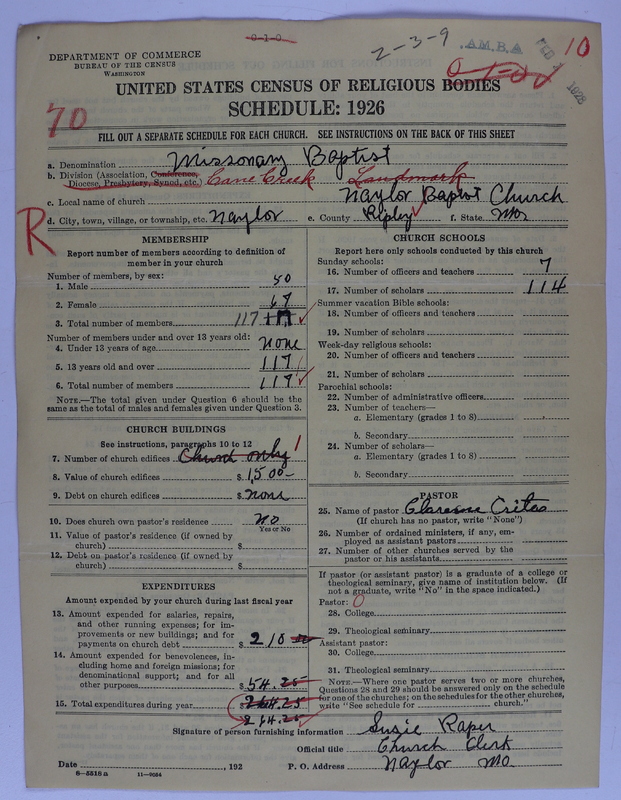 0-1-0
2-3-9 A.M.B.A FEB 1928 10
DEPARTMENT OF COMMERCE
BUREAU OF THE CENSUS
WASHINGTON
UNITED STATES CENSUS OF RELIGIOUS BODIES
SCHEDULE: 1926
70
FILL OUT A SEPARATE SCHEDULE FOR EACH CHURCH. SEE INSTRUCTIONS ON THE BACK OF THIS SHEET
a. Denomination Missonary Baptist
b. Division (Association, Conference, Diocese, Presbytery, Synod, etc.) Cane Creek Landmark
c. Local name of church Naylor Baptist Church
d. City, town, village, or township, etc. Naylor e. County Ripley f. State Mo
R
MEMBERSHIP
Report number of members according to definition of
member in your church
Number of members, by sex:
1. Male 50
2. Female 67
3. Total number of members 117 117
Number of members under and over 13 years old:
4. Under 13 years of age none
5. 13 years old and over 117
6. Total number of members 117
NOTE.—The total given under Question 6 should be the
same as the total of males and females given under Question 3.
CHURCH BUILDINGS
See instructions, paragraphs 10 to 12
7. Number of church edifices Church only 1
8. Value of church edifices $ 1,500-
9. Debt on church edifices $ none
10. Does church own pastor's residence no
Yes or No
11. Value of pastor's residence (if owned by
church) $
12. Debt on pastor's residence (if owned by
church) $
EXPENDITURES
Amount expended by your church during last fiscal year
13. Amount expended for salaries, repairs,
and other running expenses; for im-
provements or new buildings; and for
payments on church debt $ 210
14. Amount expended for benevolences, in-
cluding home and foreign missions; for
denominational support; and for all
other purposes $ 54.25
15. Total expenditures during year $ 264.25
264.25
CHURCH SCHOOLS
Report here only schools conducted by this church
Sunday schools:
16. Number of officers and teachers 7
17. Number of scholars 114
Summer vacation Bible schools:
18. Number of officers and teachers
19. Number of scholars
Week-day religious schools:
20. Number of officers and teachers
21. Number of scholars
Parochial schools:
22. Number of administrative officers
23. Number of teachers—
a. Elementary (grades 1 to 8)
b. Secondary
24. Number of scholars—
a. Elementary (grades 1 to 8)
b. Secondary
PASTOR
25. Name of pastor Clarence Crites
(If church has no pastor, write "None")
26. Number of ordained ministers, if any, em-
ployed as assistant pastors
27. Number of other churches served by the
pastor or his assistants
If pastor (or assistant pastor) is a graduate of a college or
theological seminary, give name of institution below. (If
not a graduate, write "No" in the space indicated.)
Pastor: 0
28. College
29. Theological seminary
Assistant pastor:
30. College
31. Theological seminary
NOTE.—Where one pastor serves two or more churches,
Questions 28 and 29 should be answered only on the schedule
for one of the churches; on the schedules for the other churches,
write "See schedule for church."
Signature of person furnishing information Susie Raper
Official title Church Clerk
Date , 192 P. O. Address Naylor Mo.
8-5518a 11-9034